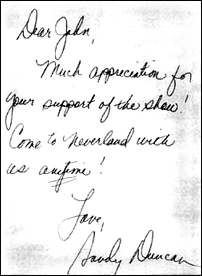 Dear John,
Much appreciation for
your support of the show!
Come to Neverland with
us anytime!
Love,
Sandy Duncan